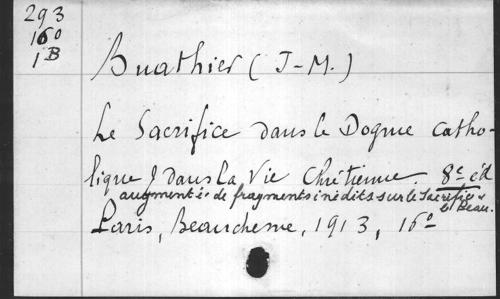 293
16º
1 B
Buathier (J-M.)
Le Sacrifice dans le Dogme catho-
lique & dans la Vie Chrétienne. 8ᵉ éd
augmentée de fragments inédits sur le Sacrifice &
le Beau.
Paris, Beauchesne, 1913, 16º